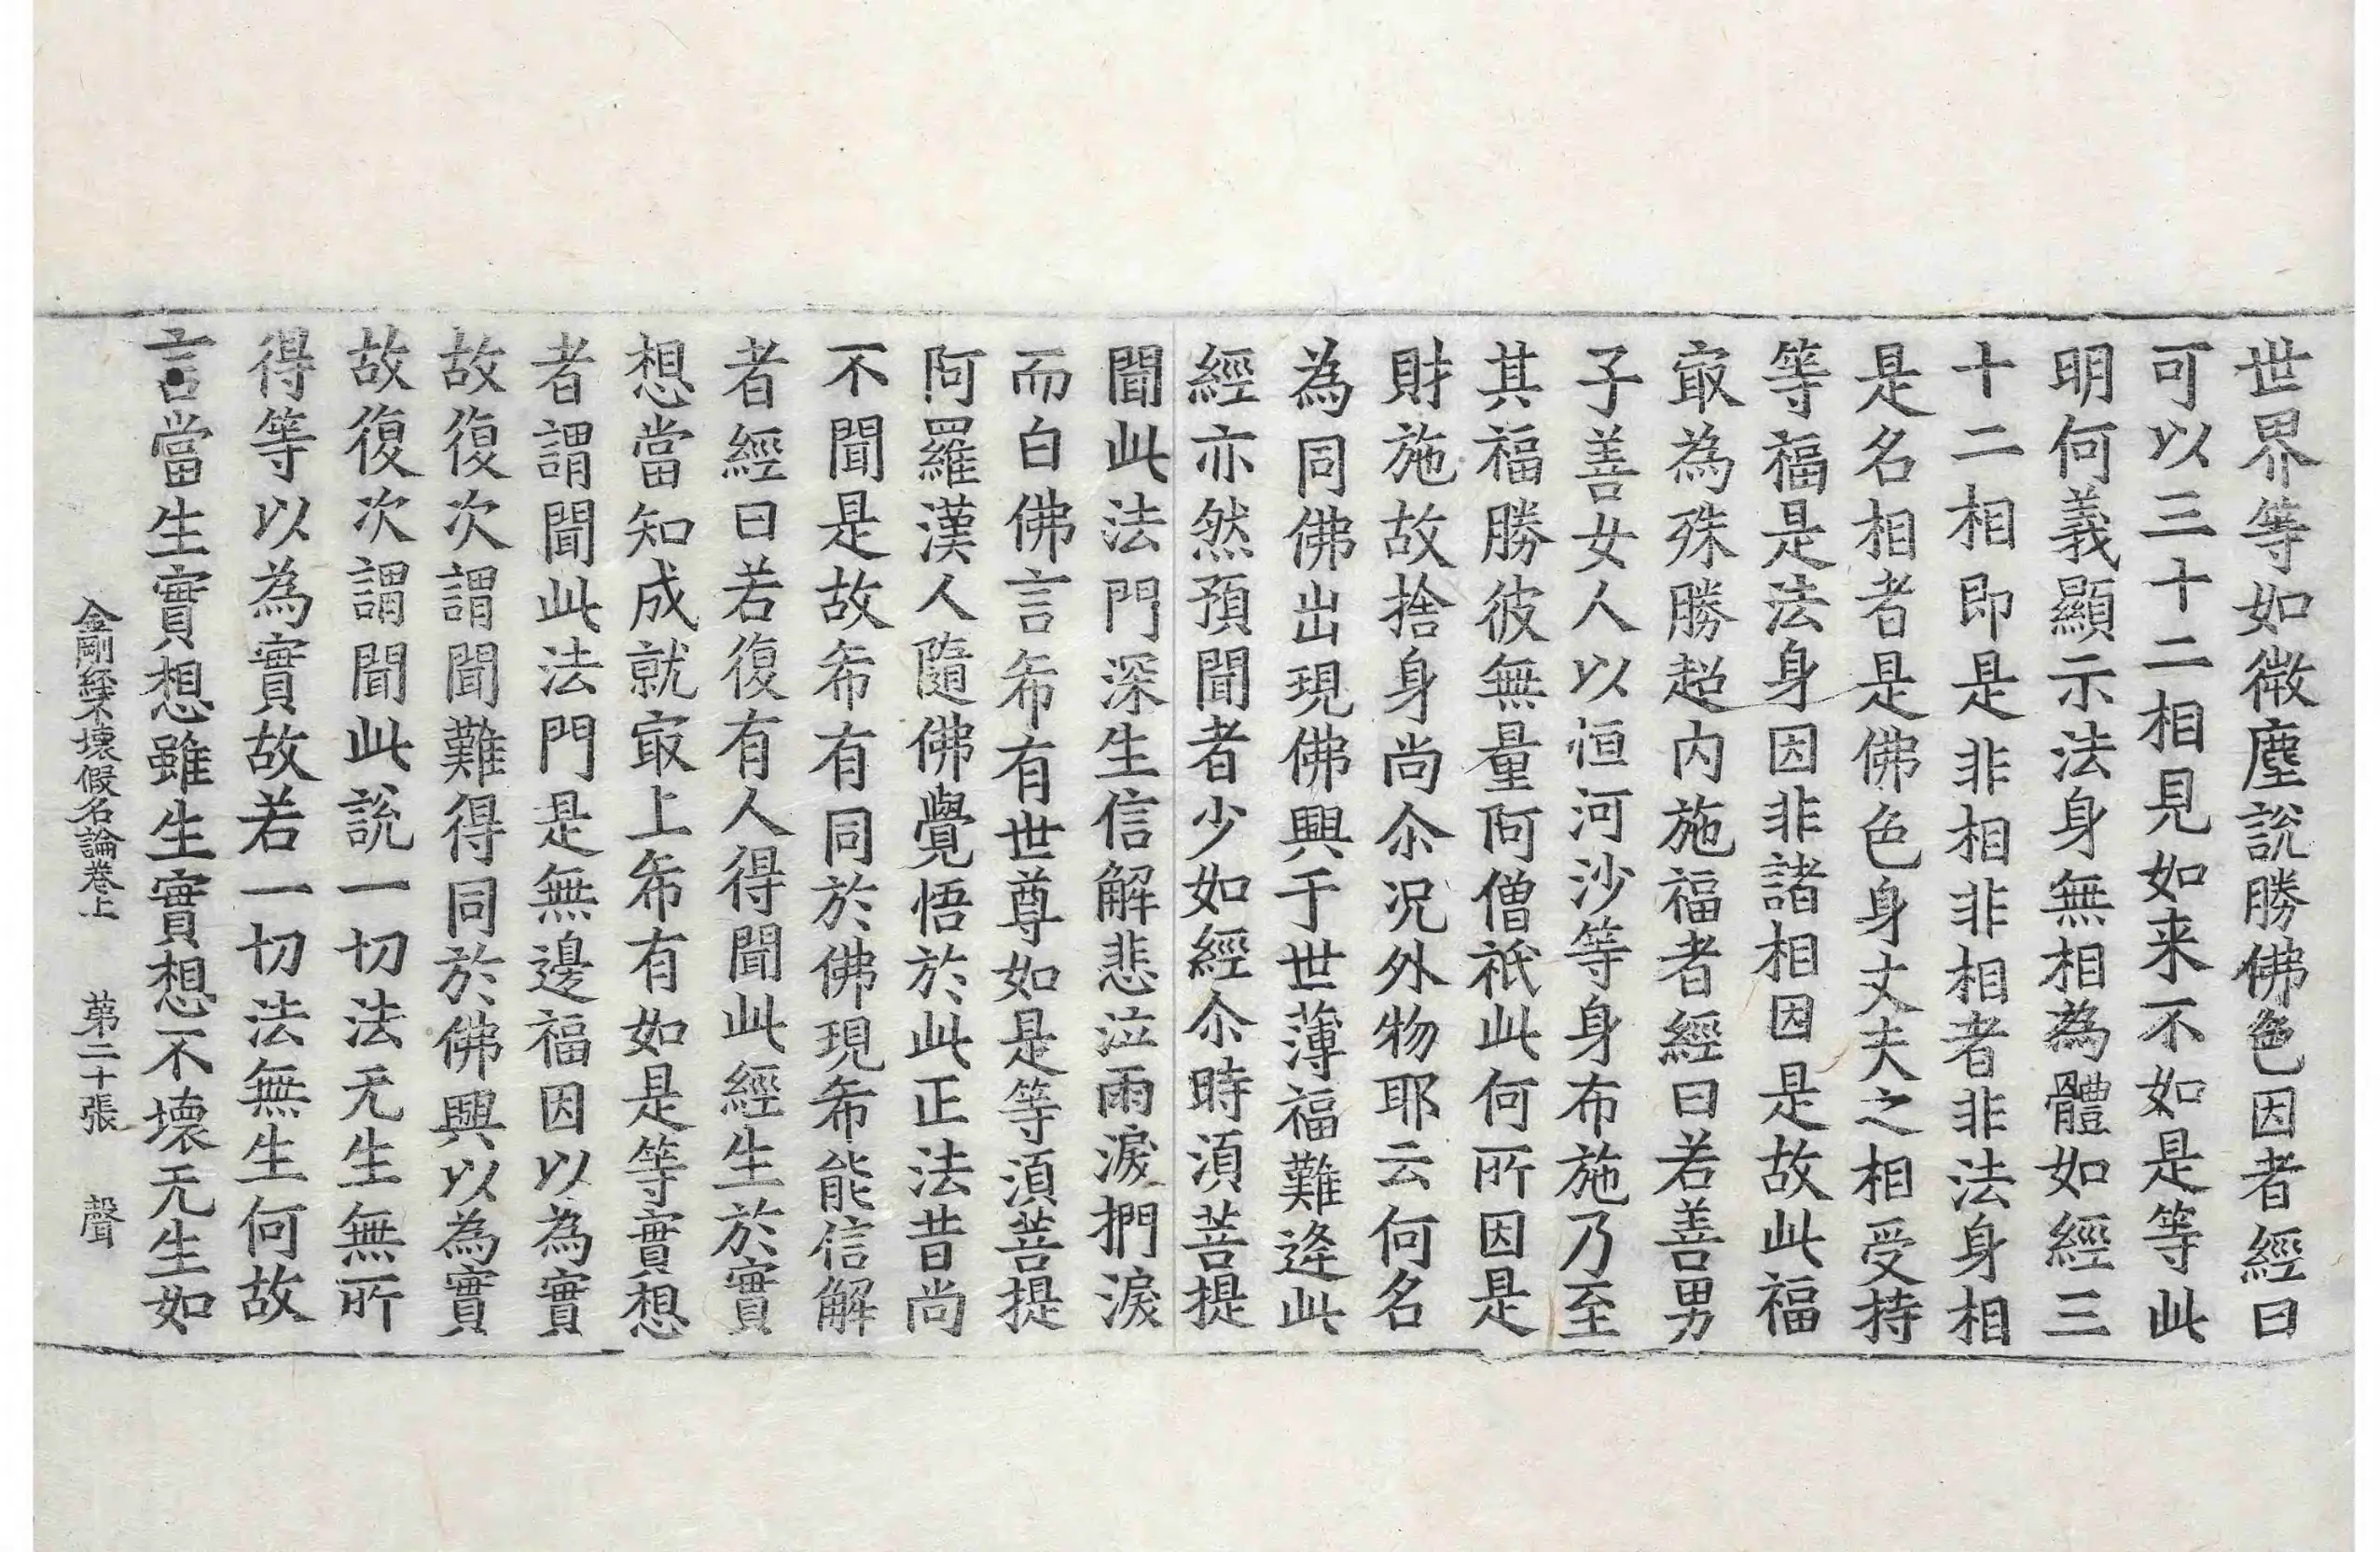 世界等如微塵說勝佛色因者經曰
可以三十二相見如来不如是等此
明何義顯示法身無相為體如經三
十二相即是非相非相者非法身相
是名相者是佛色身丈夫之相受持
等福是法身因非諸相因是故此福
㝡為殊勝超内施福者經曰若善男
子善女人以恒河沙等身布施乃至
其福勝彼無量阿僧祇此何所因是
財施故捨身尚尒况外物耶云何名
為同佛出現佛興于世薄福難逢此
經亦然預聞者少如經尒時湏菩提
聞此法門深生信解悲泣雨淚捫淚
而白佛言希有世尊如是等湏菩提
阿羅漢人隨佛覺悟於此正法昔尚
不聞是故希有同於佛現希能信解
者經曰若復有人得聞此經生於實
想當知成就㝡上希有如是等實想
者謂聞此法門是無邊福因以為實
故復次謂聞難得同於佛興以為實
故復次謂聞此說一切法无生無所
得等以為實故若一切法無生何故
言當生實想雖生實想不壞无生如
金剛經不壞假名論卷上 第二十張 聲